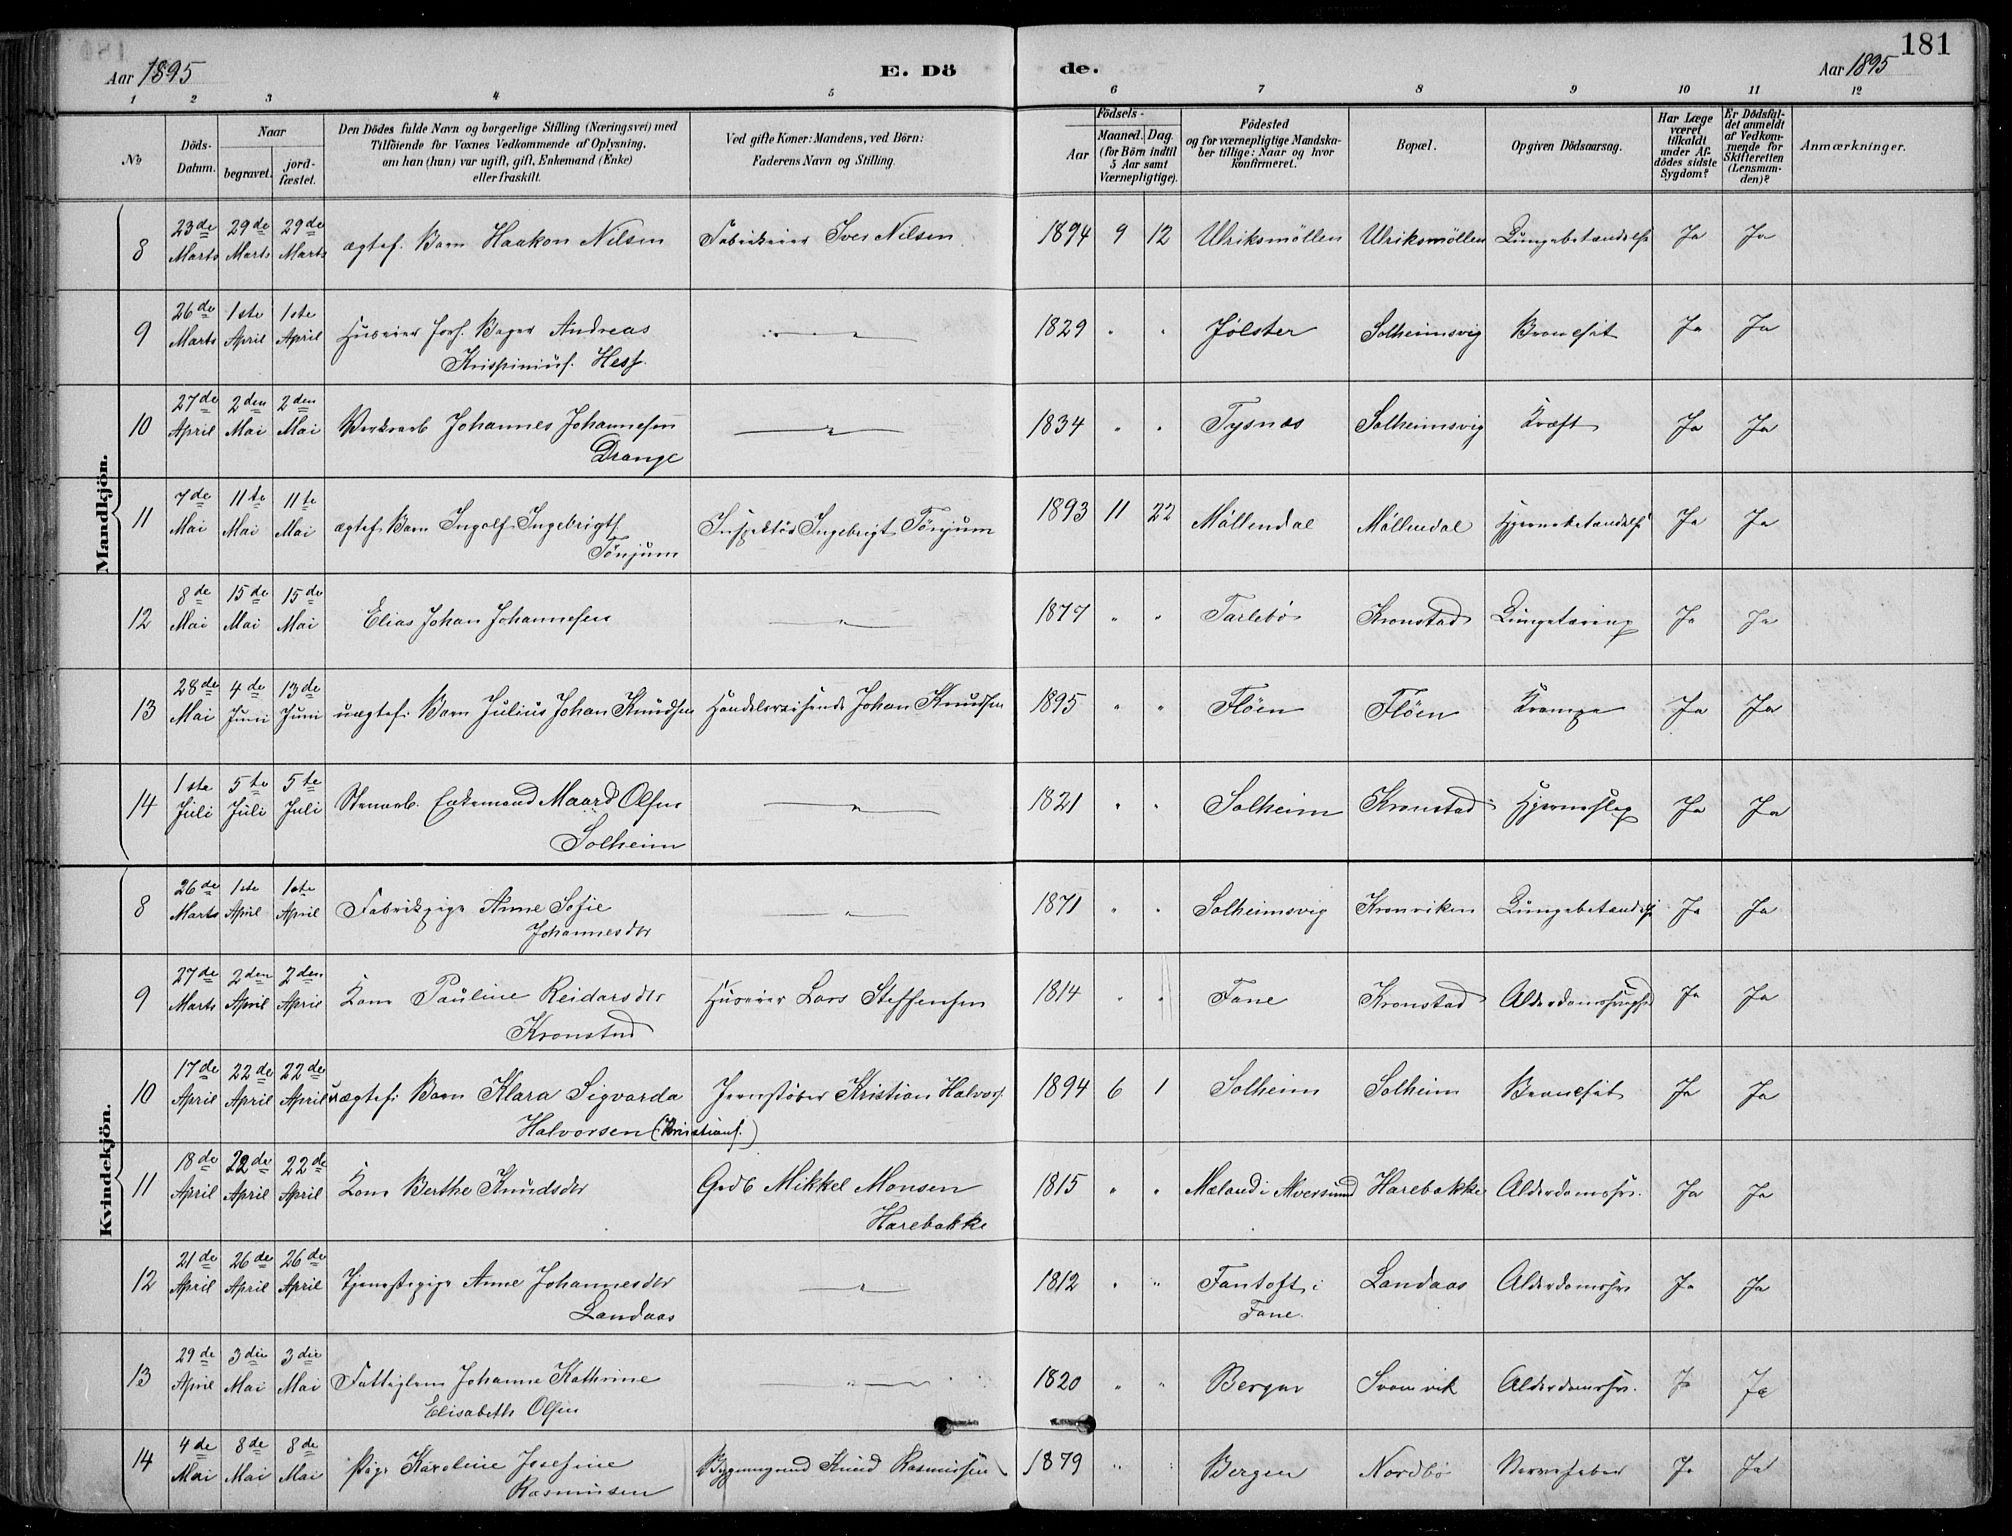 181
Aar 1895
E. Dö
de.
Aar 1895
1 2 3 4 5 6 7 8 9 10 11 12
No
Döds-Datum.
Naar
begravet.
jord-fæstet.
Den Dödes fulde Navn og borgerlige Stilling (Næringsvei) med
Tilföiende for Voxnes Vedkommende af Oplysning,
om han (hun) var ugift, gift, Enkemand (Enke)
eller fraskilt.
Ved gifte Koner: Mandens, ved Börn:
Faderens Navn og Stilling.
Födsels-
Aar
Maaned. Dag.
(for Börn indtil
5 Aar samt
Værnepligtige).
Födested
og for værnepligtige Mandska-
ber tillige: Naar og hvor
konfirmeret.
Bopæl.
Opgiven Dödsaarsag.
Har Læge
været
tilkaldt
under Af-
dödes sidste
Sygdom?
Er Dödsfal-
det anmeldt
af Vedkom-
mende for
Skifteretten
(Lensman-
den)?
Anmærkninger.
Mandkjön.
8 23de Marts 29de Marts 29de Marts ægtef. Barn Haakon Nilsen Fabrikeier Iver Nilsen 1894 9 12 Ulriksmöllen Ulriksmöllen Lungebetændelse Ja Ja
9 26de Marts 1ste April 1ste April Huseier forh. Bager Andreas
Krispinius. Hess. — " — 1829 " " Jölster Solheimsvig Bronchit Ja Ja
10 27de April 2den Mai 2den Mai Verksarb Johannes Johannesen
Drange — " — 1834 " " Tysnæs Solheimsvig Kræft Ja Ja
11 7de Mai 11te Mai 11te Mai ægtef. Barn Ingolf Ingebrigts.
Tönjum Inspektör Ingebrigt Tönjum 1893 11 22 Möllendal Möllendal Hjernebetændelse Ja Ja
12 8de Mai 15de Mai 15de Mai Elias Johan Johannesen — " — 1877 " " Tarlebö Kronstad Lungetæring Ja Ja
13 28de Mai 4de Juni 13de Juni uægtef. Barn Julius Johan Knudsen Handelsreisende Johan Knudsen 1895 " " Flöen Flöen Krampe Ja Ja
14 1ste Juli 5te Juli 5te Juli Stenarb. Enkemand Maard Olsen
Solheim — " — 1821 " " Solheim Kronstad Hjerneslag Ja Ja
Kvindekjön.
8 26de Marts 1ste April 1ste April Fabrikpige Anne Sofie
Johannesdtr — " — 1871 " " Solheimsvig Kronviken Lungebetændelse Ja Ja
9 27de Marts 2den April 2den April Kone Pauline Reidarsdtr
Kronstad Huseier Lars Steffensen 1814 " " Fane Kronstad Alderdomssvaghed Ja Ja
10 17de April 22de April 22de April uægtef. Barn Klara Sigvarda
Halvorsen (Kristians.) Jernstöber Kristian Halvors. 1894 6 1 Solheim Solheim Bronchit Ja Ja
11 18de April 22de April 22de April Kone Berthe Knudsdtr Grdb Mikkel Monsen
Harebakke 1815 " " Mæland i Alversund Harebakke Alderdomssv. Ja Ja
12 21de April 26de April 26de April Tjenestepige Anne Johannesdtr
Landaas — " — 1812 " " Fantoft i
Fane Landaas Alderdomssv. Ja Ja
13 29de April 3die Mai 3die Mai Fattiglem Johanne Kathrine
Elisabeth Olsen — " — 1820 " " Bergen Alderdomssv. Ja Ja
14 4de Mai 8de Mai 8de Mai Pige Karoline Josefine
Rasmussen Knud Rasmussen 1879 " " Bergen Nordbö Nervefeber Ja Ja